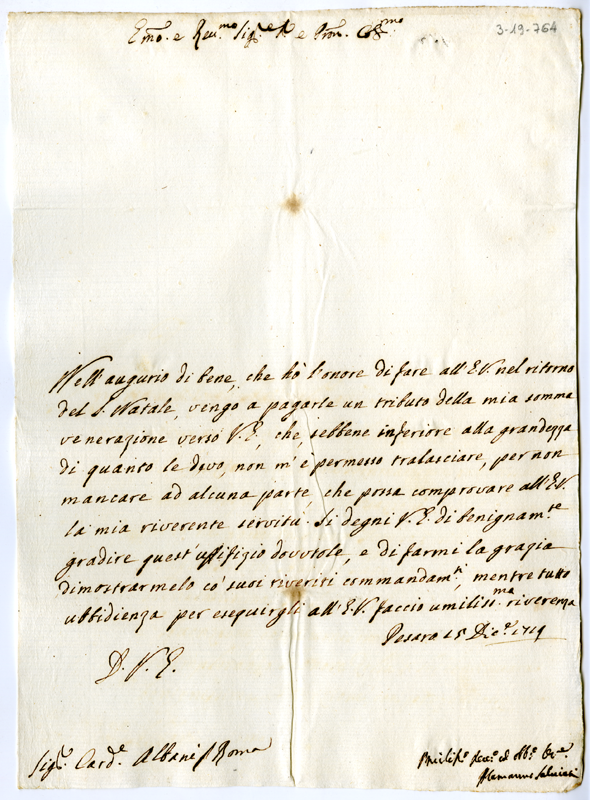 Emo. e Reu.mo Sig.re e Pron. Col.mo
3-19-764
Nell'augurio di bene, che hò l'onore di fare all'E.V. nel ritorno
del S. Natale, vengo a pagarle un tributo della mia somma
venerazione verso V.E., che, sebbene inferiore alla grandezza
di quanto le devo, non m'è permesso tralasciare, per non
mancare ad alcuna parte, che possa comprovare all'E.V.
la mia riverente servitù. Si degni V.E. di benignam.te
gradire quest'uffifizio dovutole, e di farmi la grazia
dimostrarmelo co' suoi riveriti commandam.ti, mentre tutto
ubbidienza per eseguirgli all'E.V. faccio umiliss.ma riverenza
Pesaro 15 Dic.e 1719
D. V. E.
Sig.r Card.e Albani / Roma
Salviati